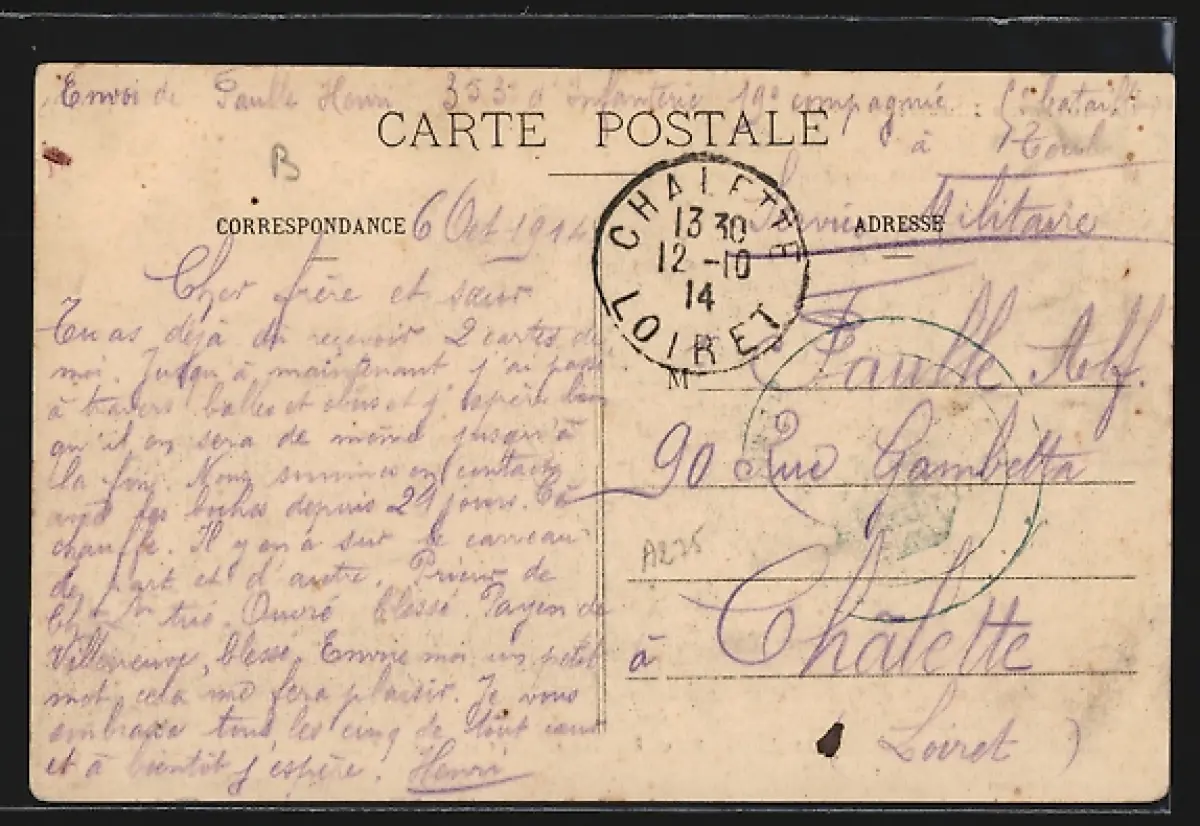 Envoi de Paulle Henri 353e d'Infanterie 19e compagnie
à Toul
CARTE POSTALE
B
CORRESPONDANCE
6 Oct 1914
Cher frère et sœur
Tu as déjà dû reçevoir 2 cartes de
moi. Jusqu'à maintenant j'ai passé
à travers balles et obus et j'espère bien
qu'il en sera de même jusqu'à
la fin. Nous sommes en contact
avec les boches depuis 21 jours. Ca
chauffe. Il y en a sur le carreau
de part et d'autre. Prieur de
tué. Ouvré blessé. Payen de
Villeneuve, blessé. Envoie moi un petit
mot, cela me fera plaisir. Je vous
embrasse tous les cinq de tout cœur
et à bientôt j'espère! Henri
CHALETTE
13 30
12 -10
14
LOIRET
Service Militaire
ADRESSE
M
Paulle Alf.
90 Rue Gambetta
A225
à Châlette
(Loiret)